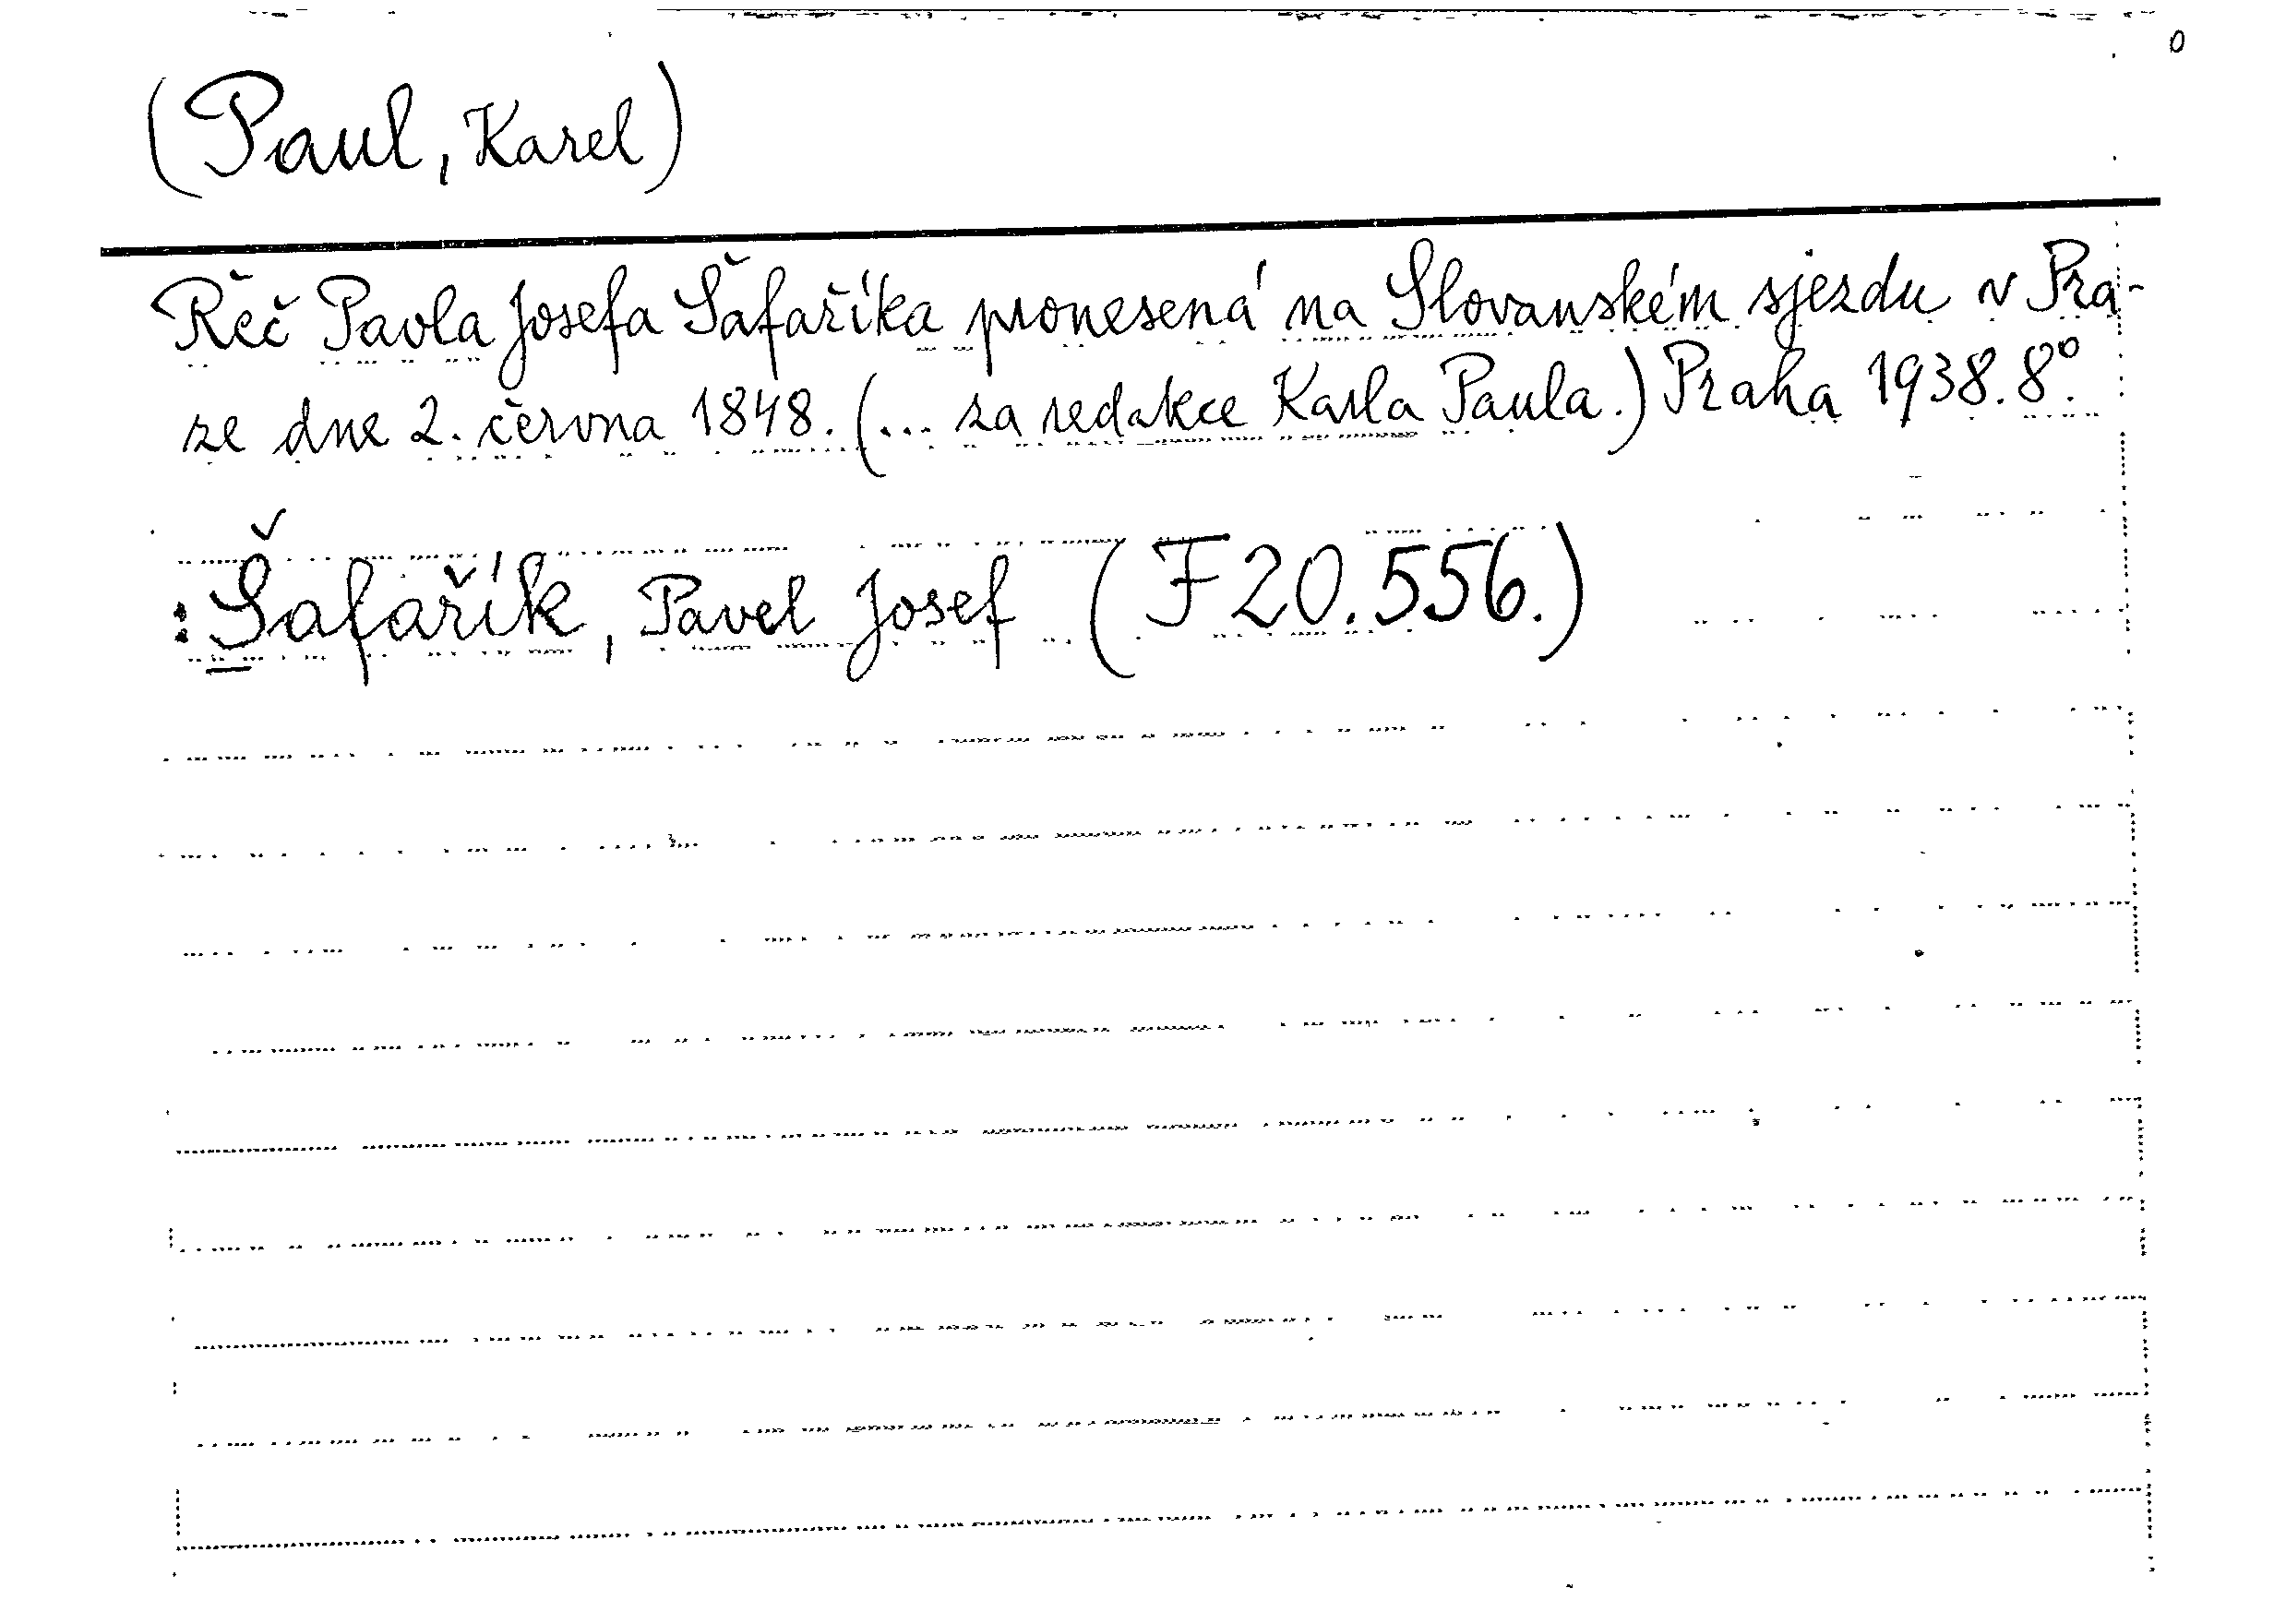 0
(Paul, Karel)
Řeč Pavla Josefa Šafaříka pronesená na Slovanském sjezdu v Pra-
ze dne 2. června 1848. (... za redakce Karla Paula.) Praha 1938. 8°.
: Šafařík, Pavel Josef (F 20.556.)